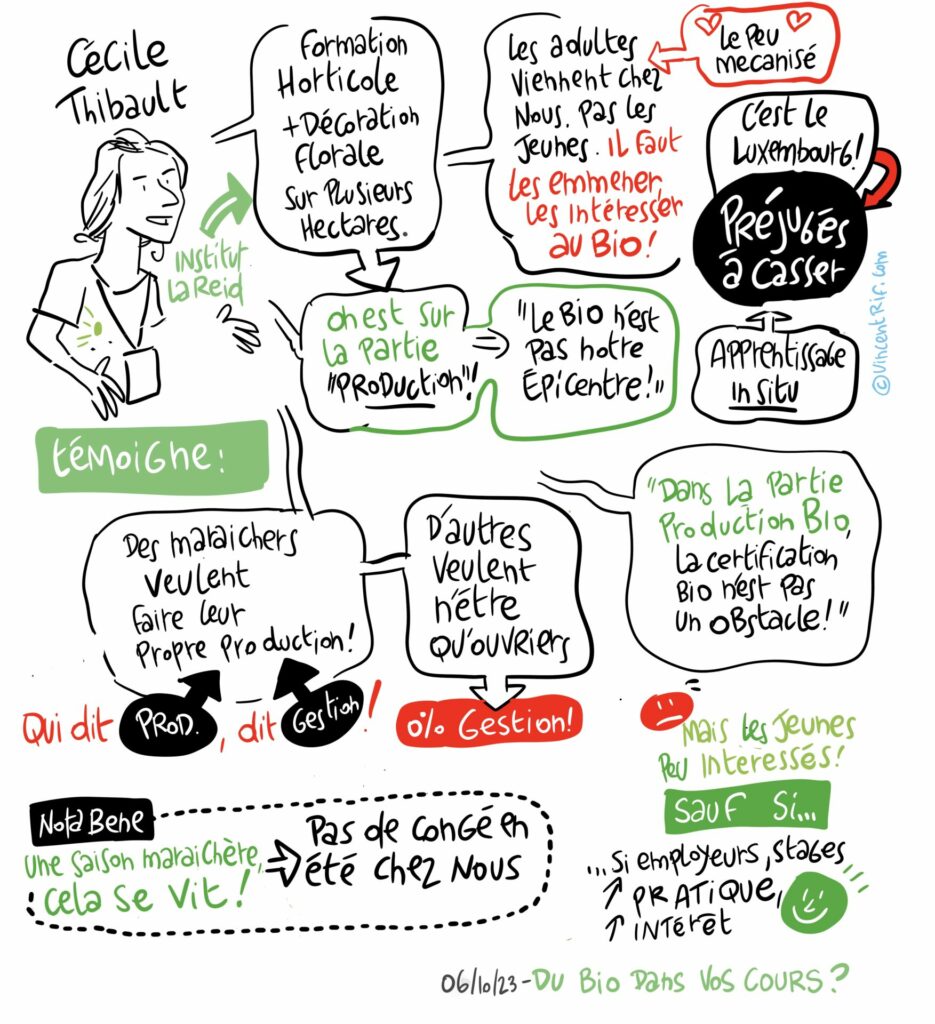 Cécile
Thibault
Formation
Horticole
+Décoration
Florale
sur Plusieurs
Hectares.
Institut
La Reid
Les adultes
viennent chez
Nous. Pas les
Jeunes. IL Faut
Les emmener,
Les Intéresser
au Bio!
Le Peu
mecanisé
C'est Le
Luxembourg!
PRéjugés
à casser
Apprentissage
In Situ
©VincentRif.com
on est sur
La Partie
"PRODuction"!
"Le Bio n'est
Pas notre
Épicentre!"
témoigne :
Des maraichers
veulent
Faire Leur
Propre Production!
D'autres
veulent
n'être
qu'ouvriers
"Dans La Partie
Production Bio,
La certification
Bio n'est Pas
un oBstacle!"
Qui dit PRoD., dit Gestion!
0% Gestion!
Mais Les Jeunes
Peu Interessés!
Sauf Si...
...Si employeurs, stages
PRATIQUE,
INTérêt
Nota Bene
une saison maraichère,
cela se vit!
Pas de congé en
été chez Nous
06/10/23-Du Bio Dans Vos COURS?